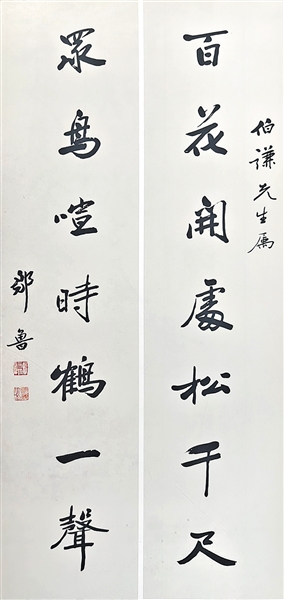 伯謙先生屬
百花開處松千尺
眾鳥喧時鶴一聲
鄒魯